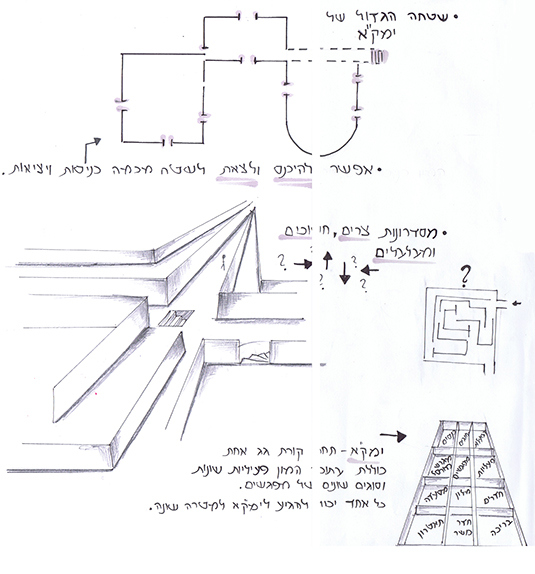 • שטחה הגדול של
ימק"א
• אפשר להיכנס ולצאת לשטח מכמה כניסות ויציאות.
• מסדרונות צרים, חשוכים
ומעגליים
? ? ? ? ?
?
ימק"א - תחת קורת גג אחת
כוללת בתוכה המון פעילויות שונות
וסוגים שונים של מפגשים.
כל אחד יכול להגיע לימק"א למטרה שונה.
מסעדה מלון חדרים
תיאטרון חדר כושר בריכה